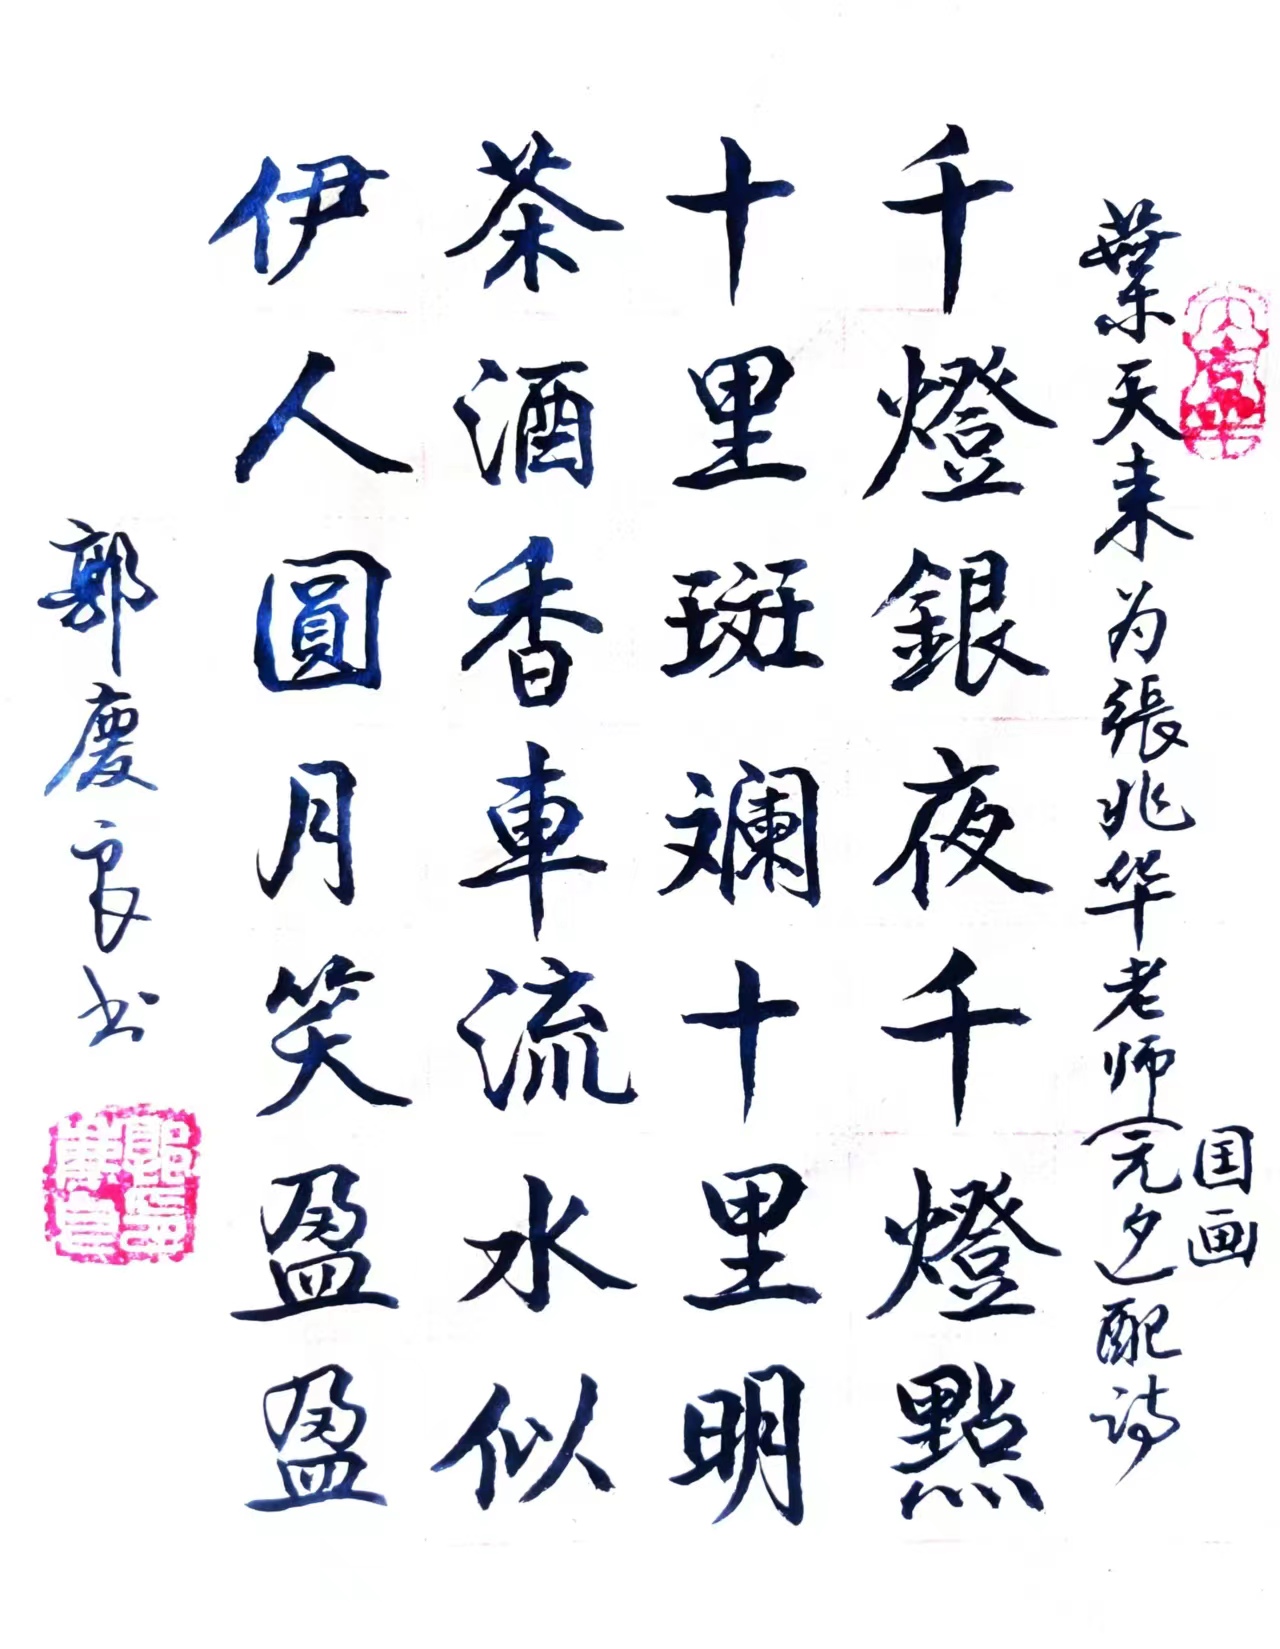 葉天来为張兆华老师国画《元夕》配诗
千燈銀夜千燈點
十里斑斓十里明
茶酒香車流水似
伊人圓月笑盈盈
郭慶良书